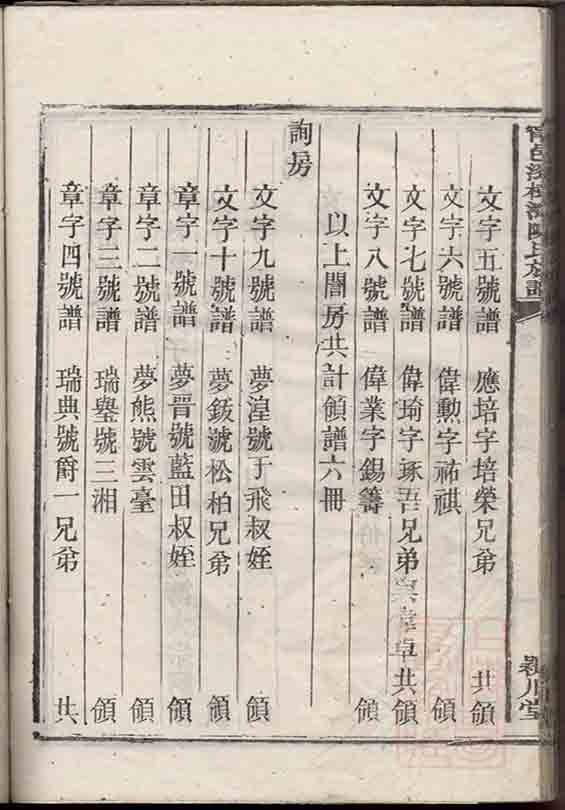 文字五號譜 應培字培榮兄弟 共領
文字六號譜 偉勲字祐祺 領
文字七號譜 偉琦字琢吾兄弟 共領
文字八號譜 偉業字錫籌 領
以上誾房共計領譜六冊
詢房
文字九號譜 夢湟號于飛叔姪 領
文字十號譜 夢鈸號松柏兄弟 領
章字一號譜 夢晋號藍田叔姪 領
章字二號譜 夢熊號雲臺 領
章字三號譜 瑞鑾號三湘 領
章字四號譜 瑞典號爵一兄弟 共
潁川堂